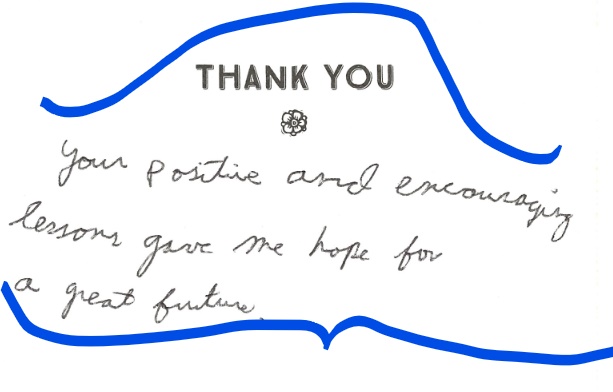 THANK YOU
Your positive and encouraging
lessons gave me hope for
a great future.